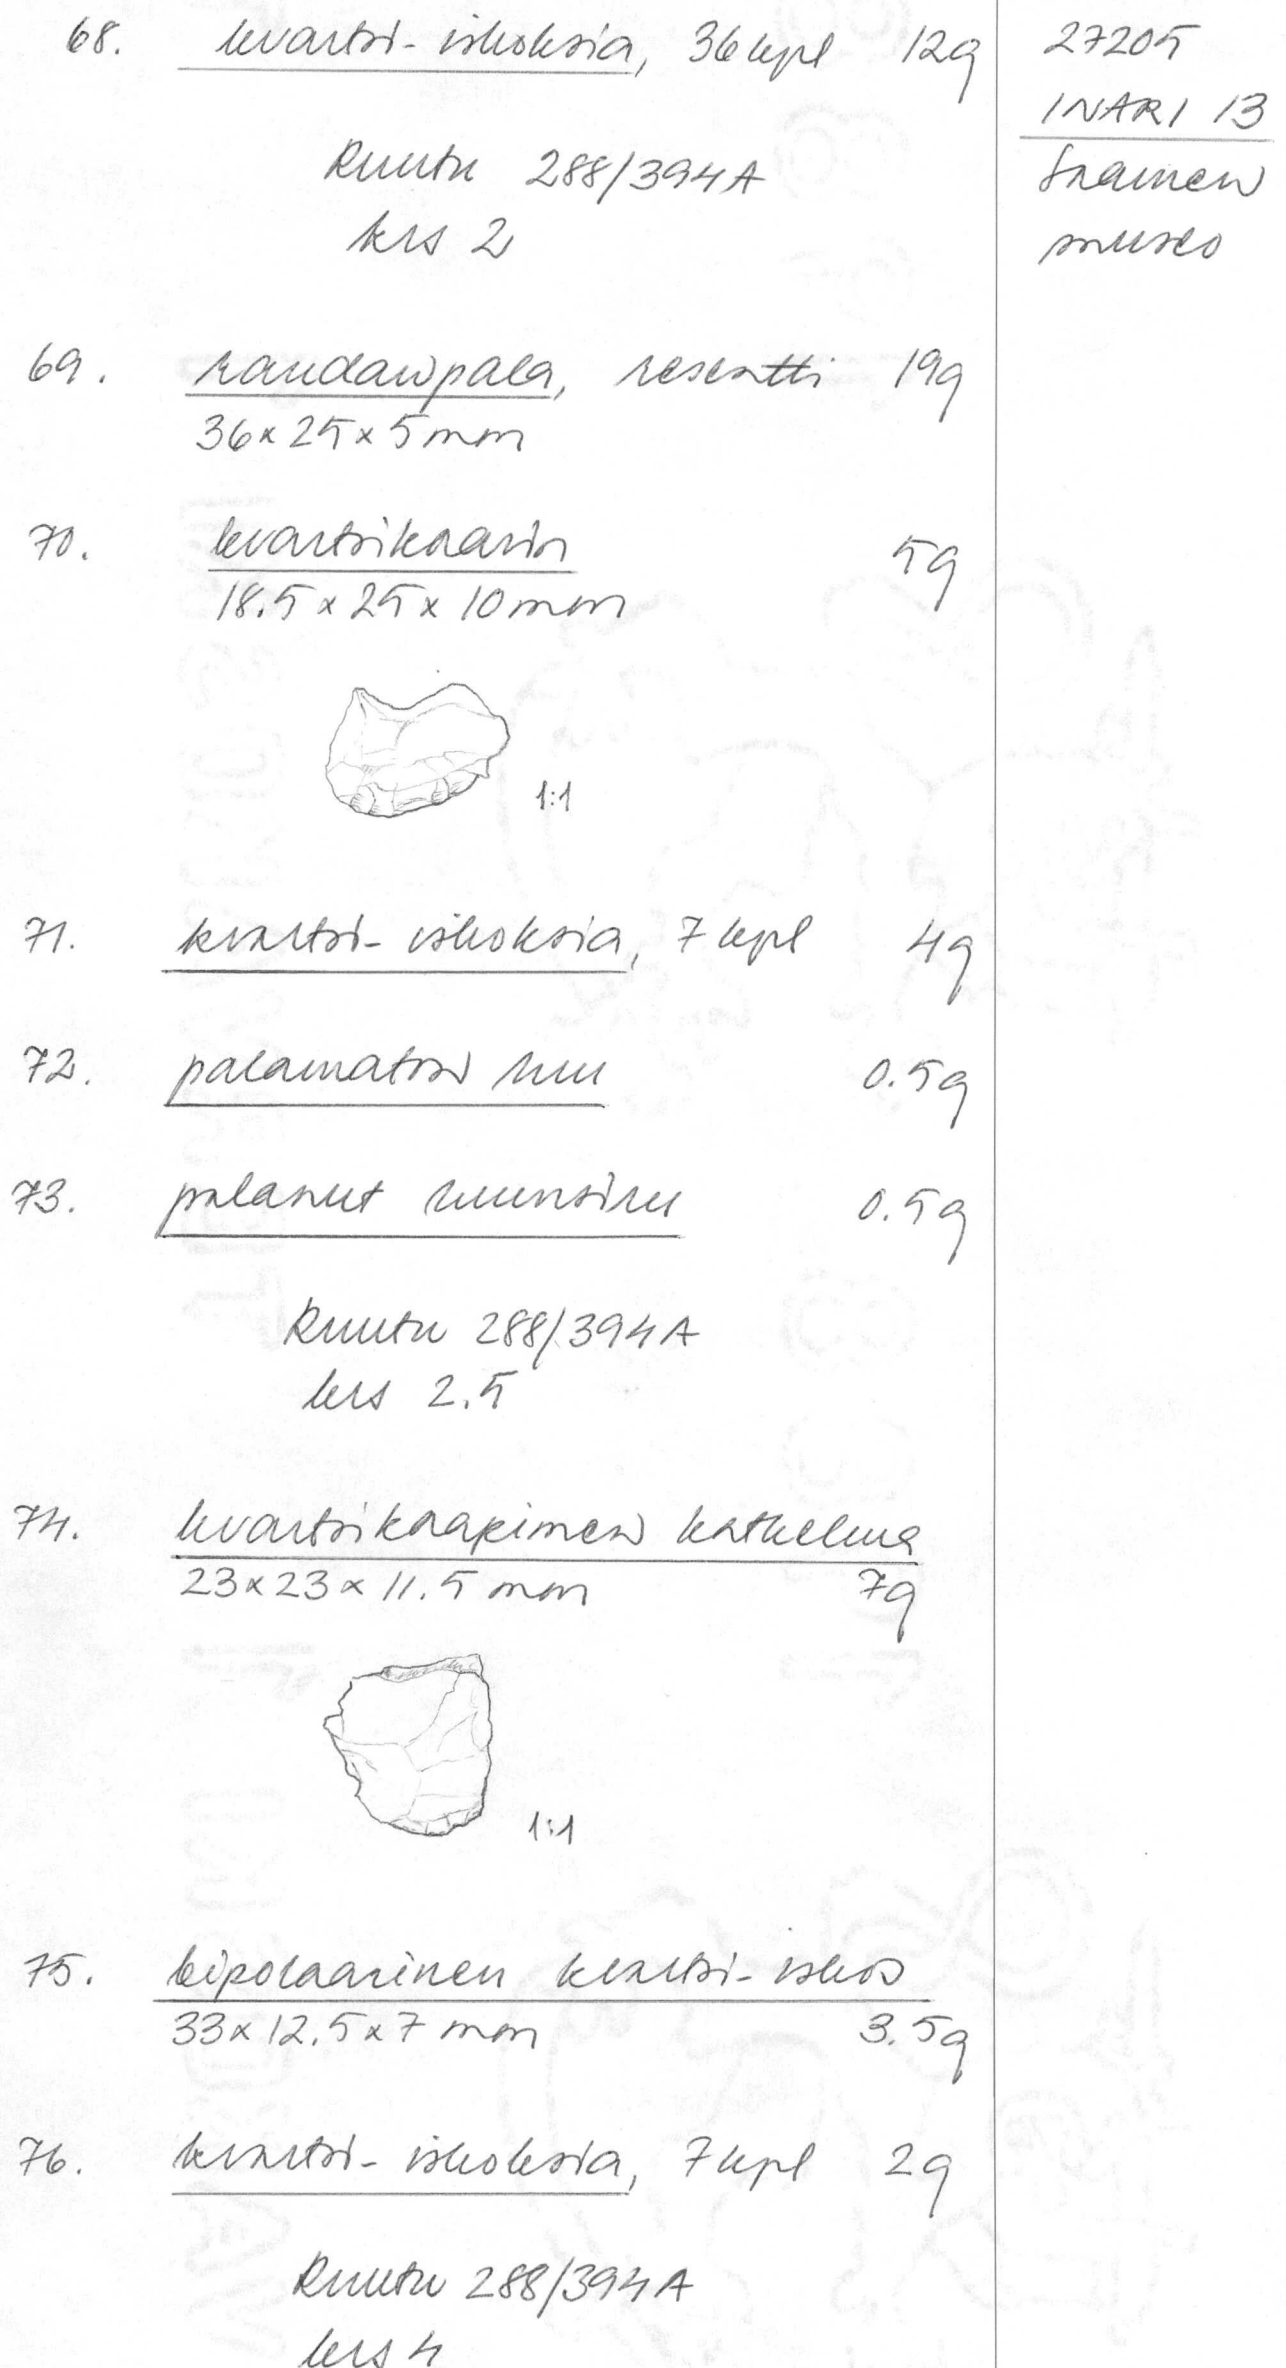 68. kvartsi-iskoksia, 36 kpl 12g
27205
INARI 13
Saamen
museo
Ruutu 288/394A
krs 2
69. raudanpala, resentti 19g
36x25x5mm
70. kvartsikaavin 5g
18.5x25x10mm
1:1
71. kvartsi-iskoksia, 7 kpl 4g
72. palamaton luu 0.5g
73. palanut luunsiru 0.5g
Ruutu 288/394A
krs 2.5
74. kvartsikaapimen katkelma
23x23x11.5 mm 7g
1:1
75. bipolaarinen kvartsi-iskos
33x12.5x7 mm 3.5g
76. kvartsi-iskoksia, 7 kpl 2g
Ruutu 288/394A
krs 4